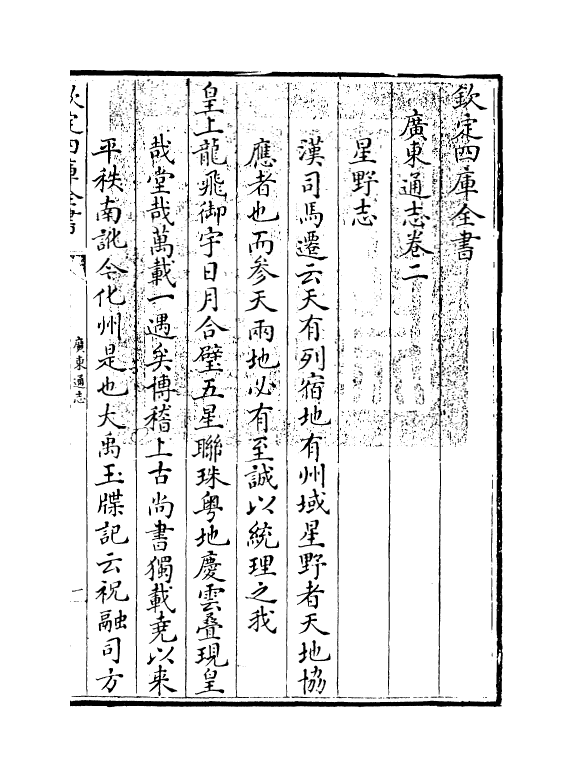 欽定四庫全書
廣東通志卷二
星野志
漢司馬遷云天有列宿地有州域星野者天地協
應者也而參天兩地必有至誠以統理之我
皇上龍飛御宇日月合璧五星聯珠粤地慶雲叠現皇
哉堂哉萬載一遇矣博稽上古尚書獨載堯以来
平秩南訛今化州是也大禹玉牒記云祝融司方
欽定四庫全書
廣東通志
一